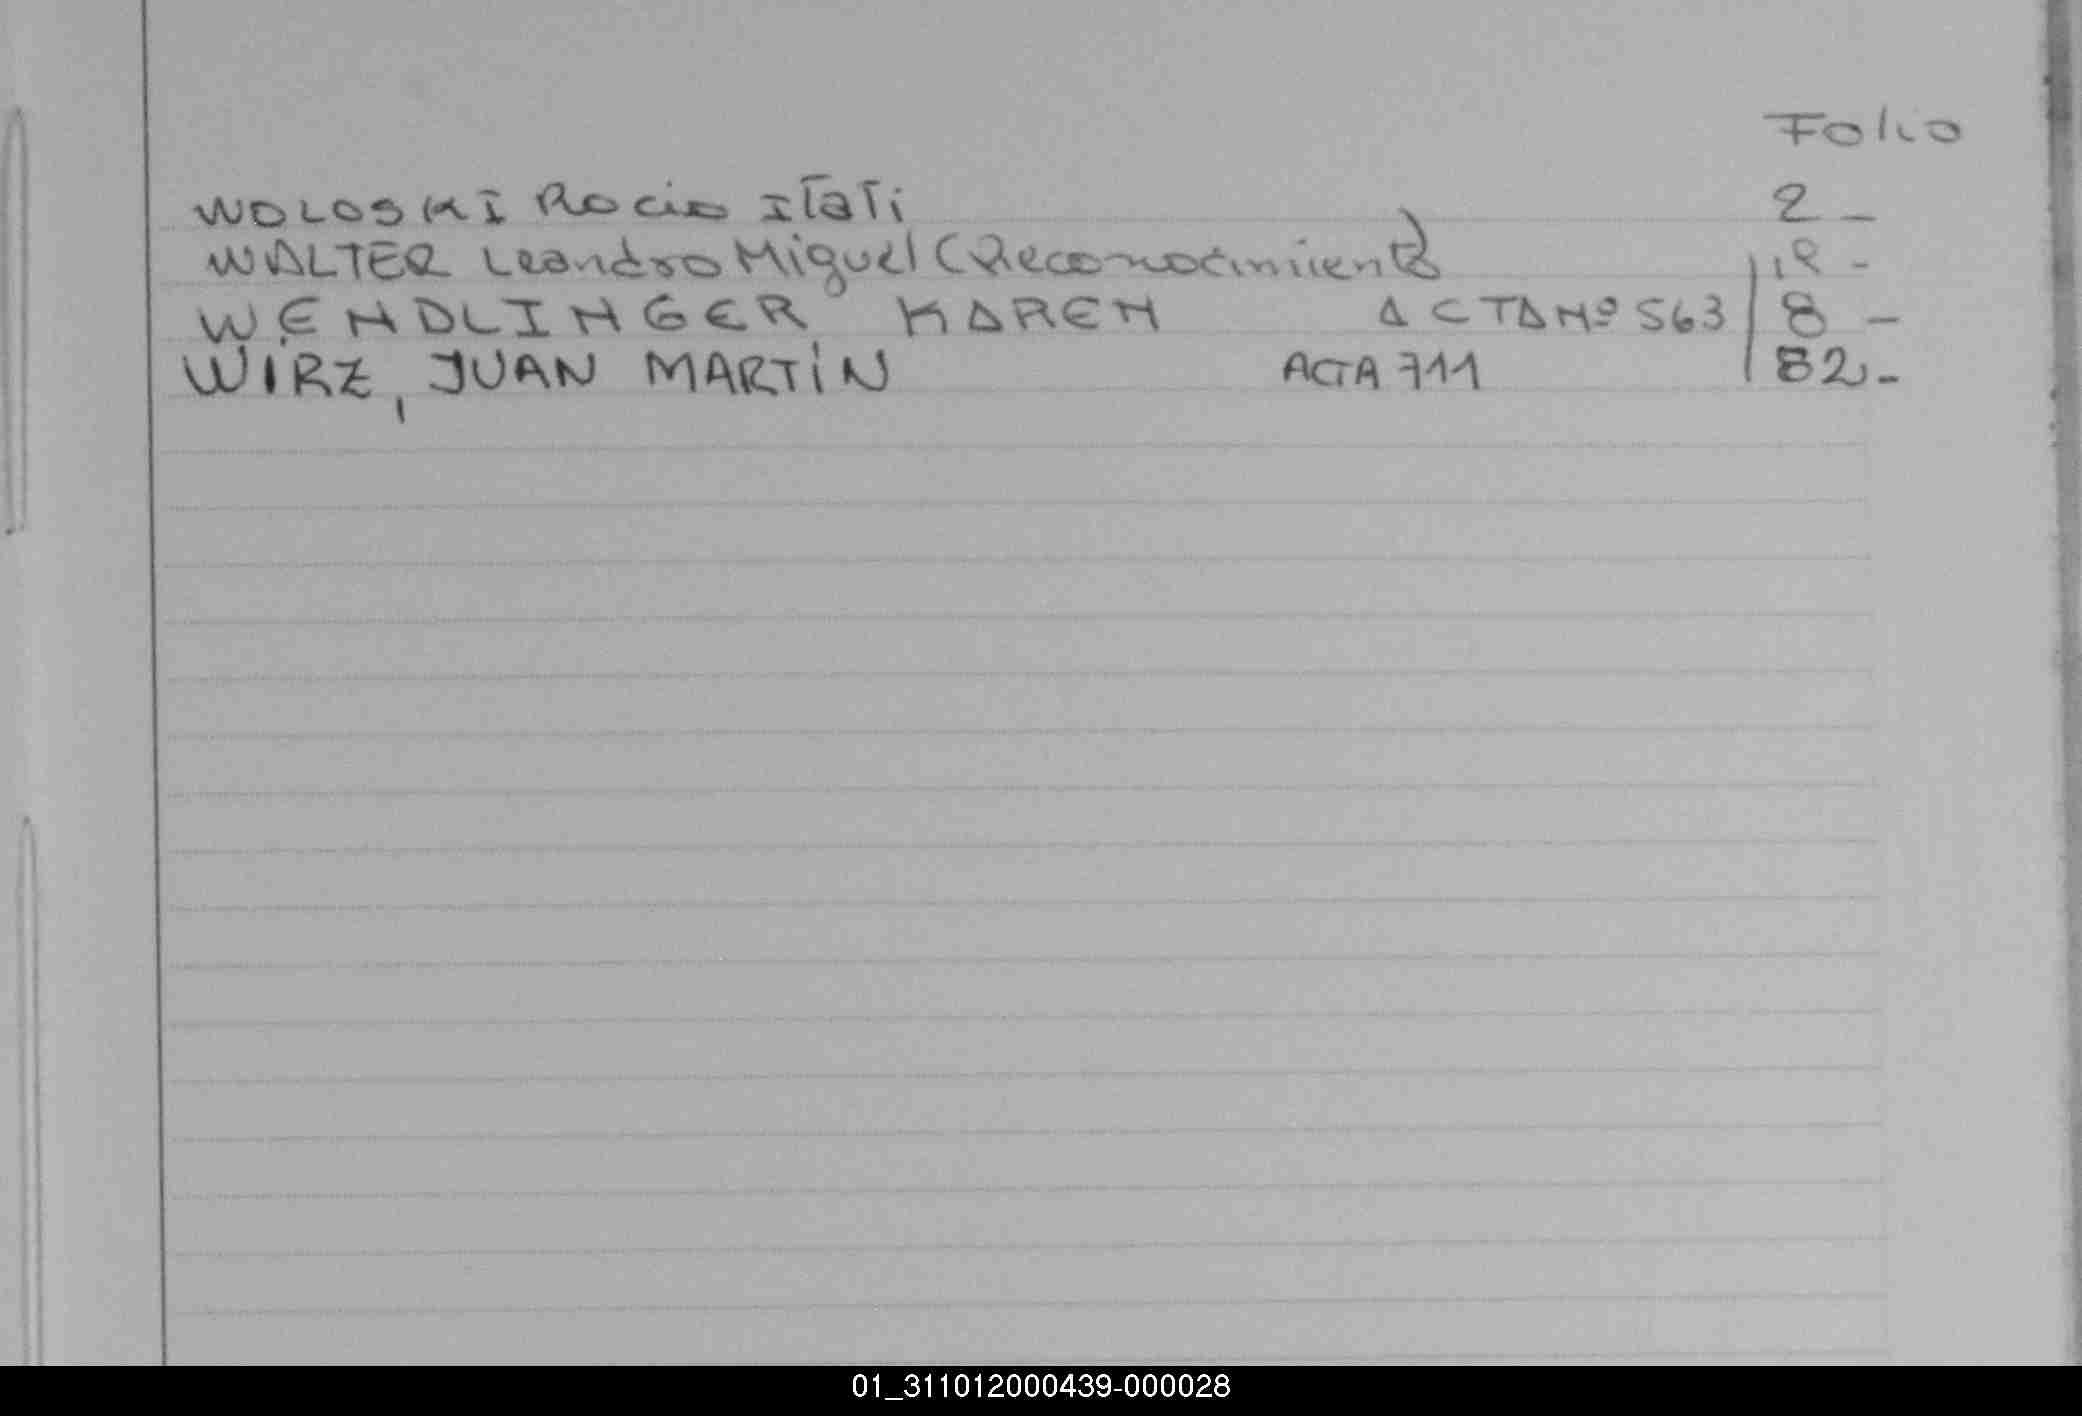 Folio
WOLOSKI Rocio Itati 2 -
WALTER Leandro Miguel (Reconocimiento) 18 -
WENDLINGER KAREN ACTA Nº 563 8 -
WIRZ, JUAN MARTÍN ACTA 711 82 -
01_311012000439-000028